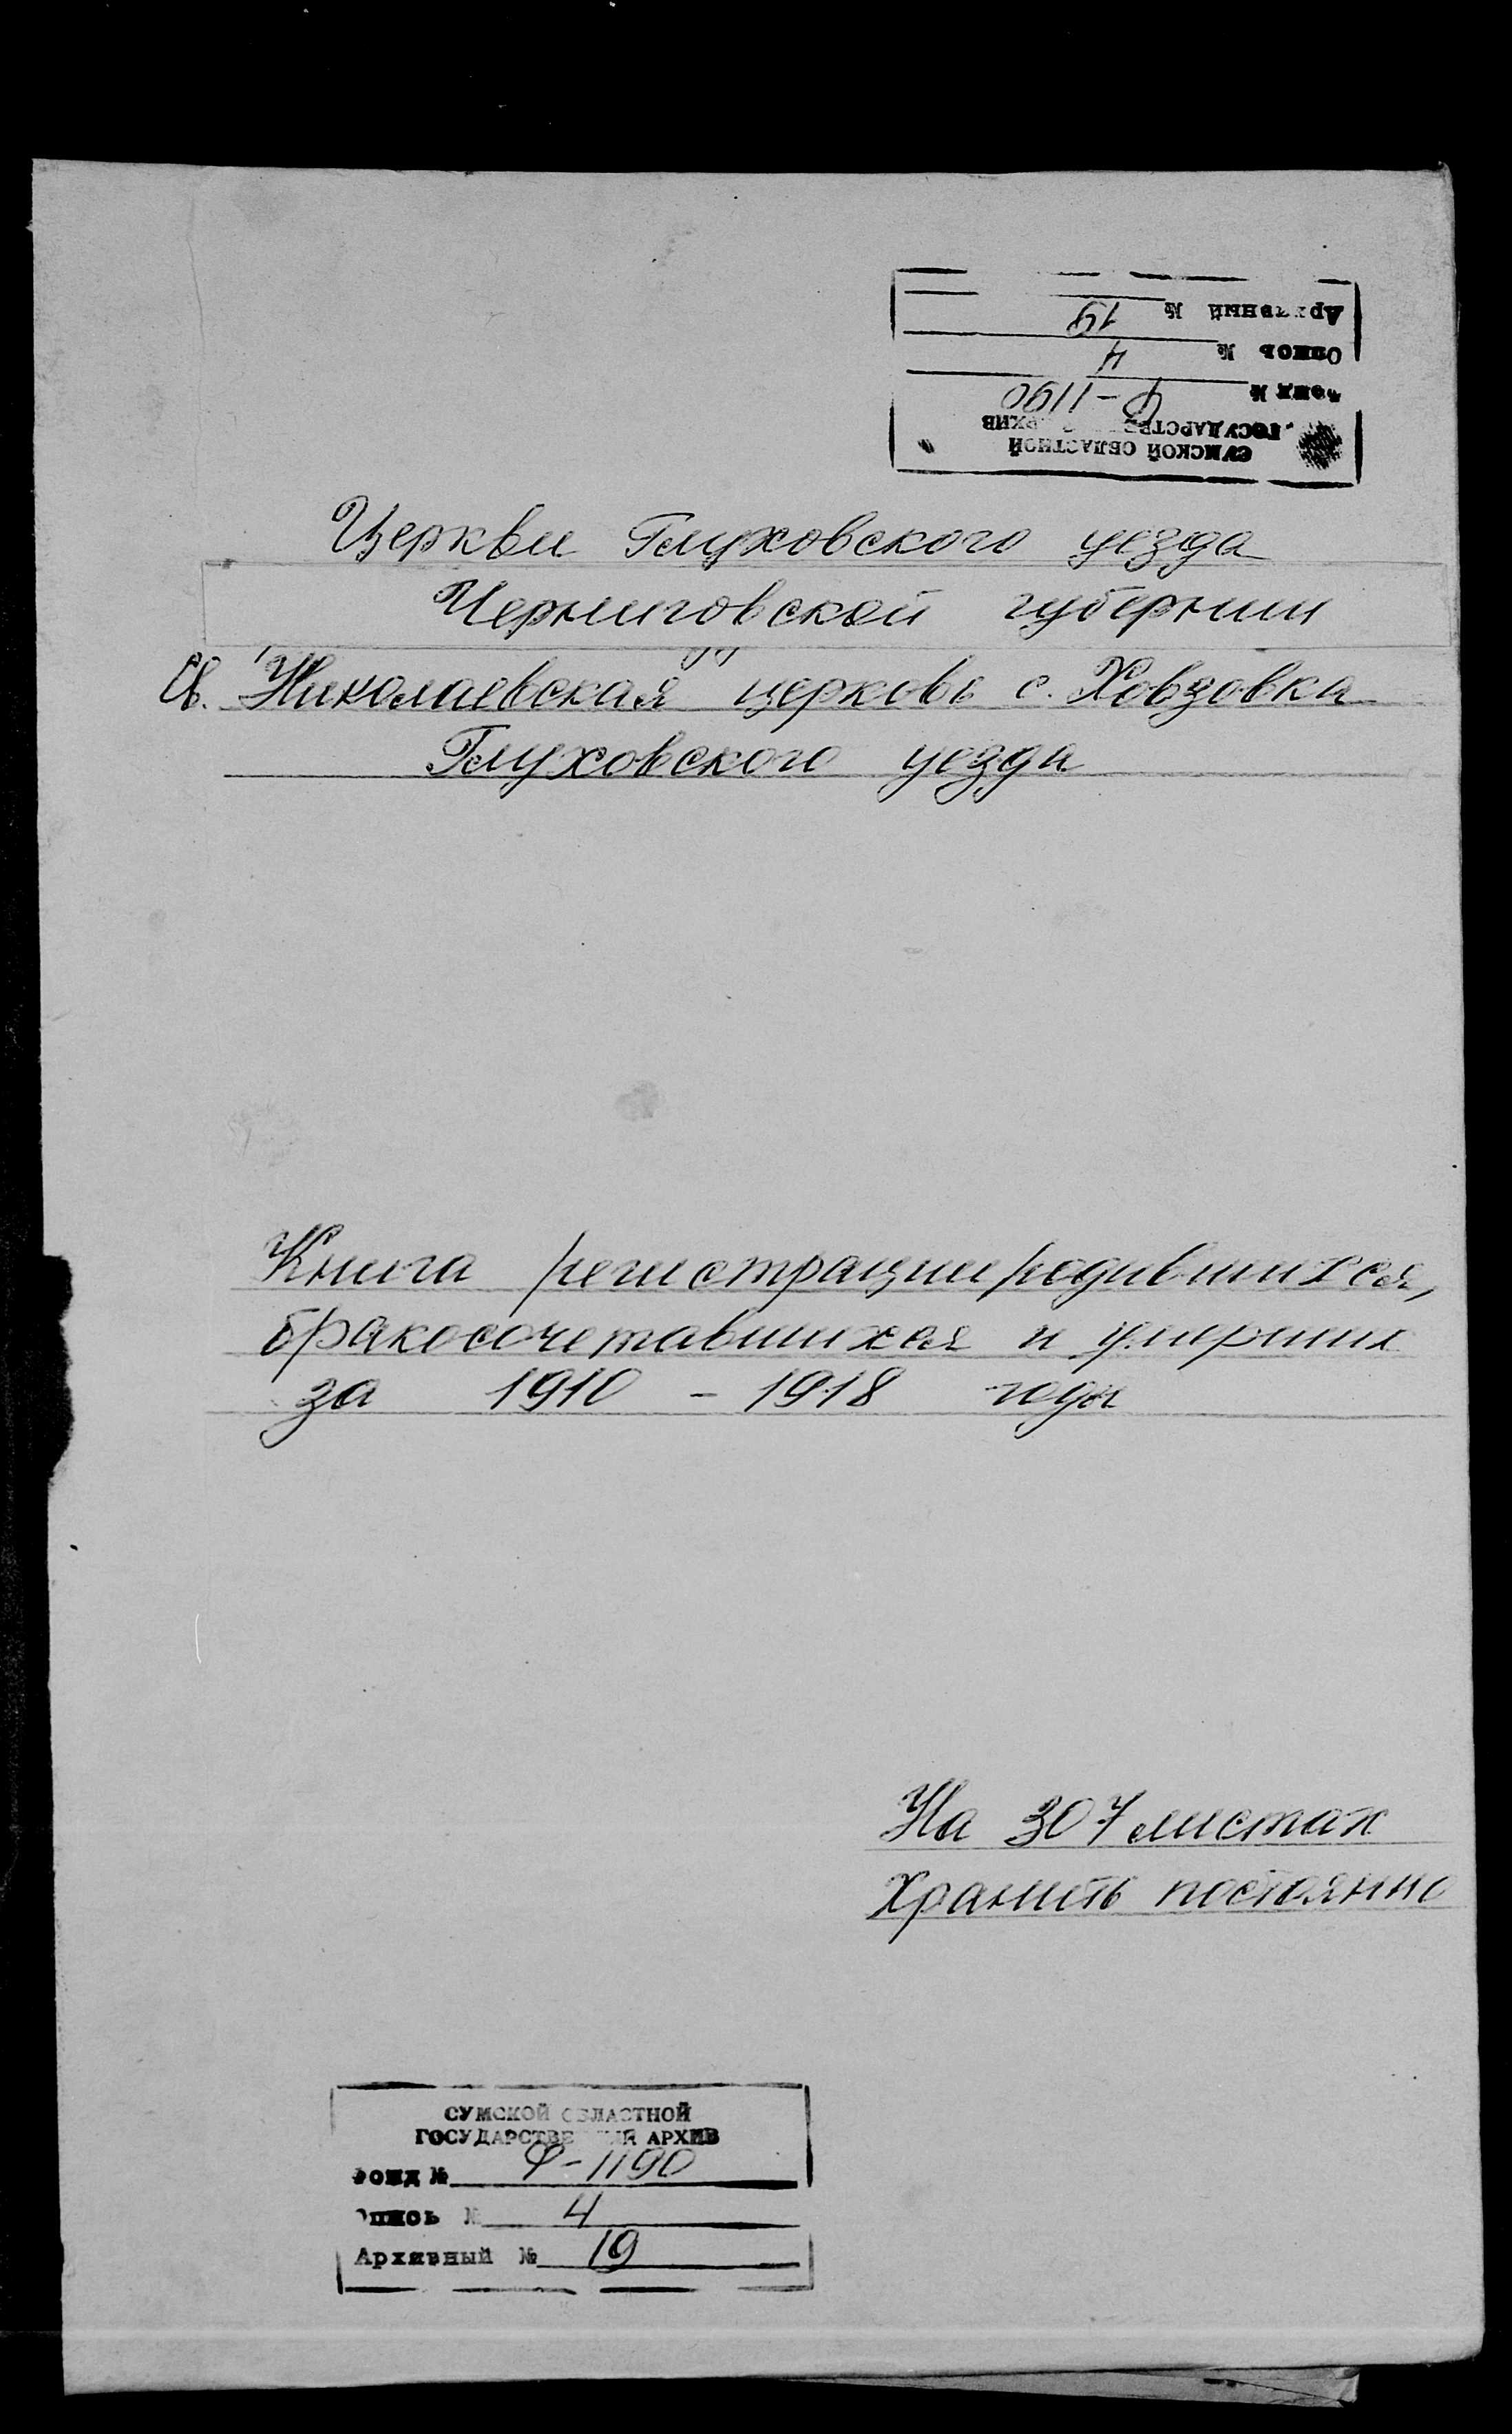 Архивный № 19
Опись № 4
Фонд № Ф-1190
СУМСКОЙ ОБЛАСТНОЙ
ГОСУДАРСТВЕ АРХИВ
Церкви Глуховского уезда
Черниговской губернии
Св. "Николаевская" церковь с. Ховзовка
Глуховского уезда
Книга регистрации родившихся,
бракосочетавшихся и умерших
за 1910 - 1918 годы
На 307 листах
Хранить постоянно
СУМСКОЙ ОБЛАСТНОЙ
ГОСУДАРСТВЕННЫЙ АРХИВ
Фонд № Ф-1190
Опись № 4
Архивный № 19